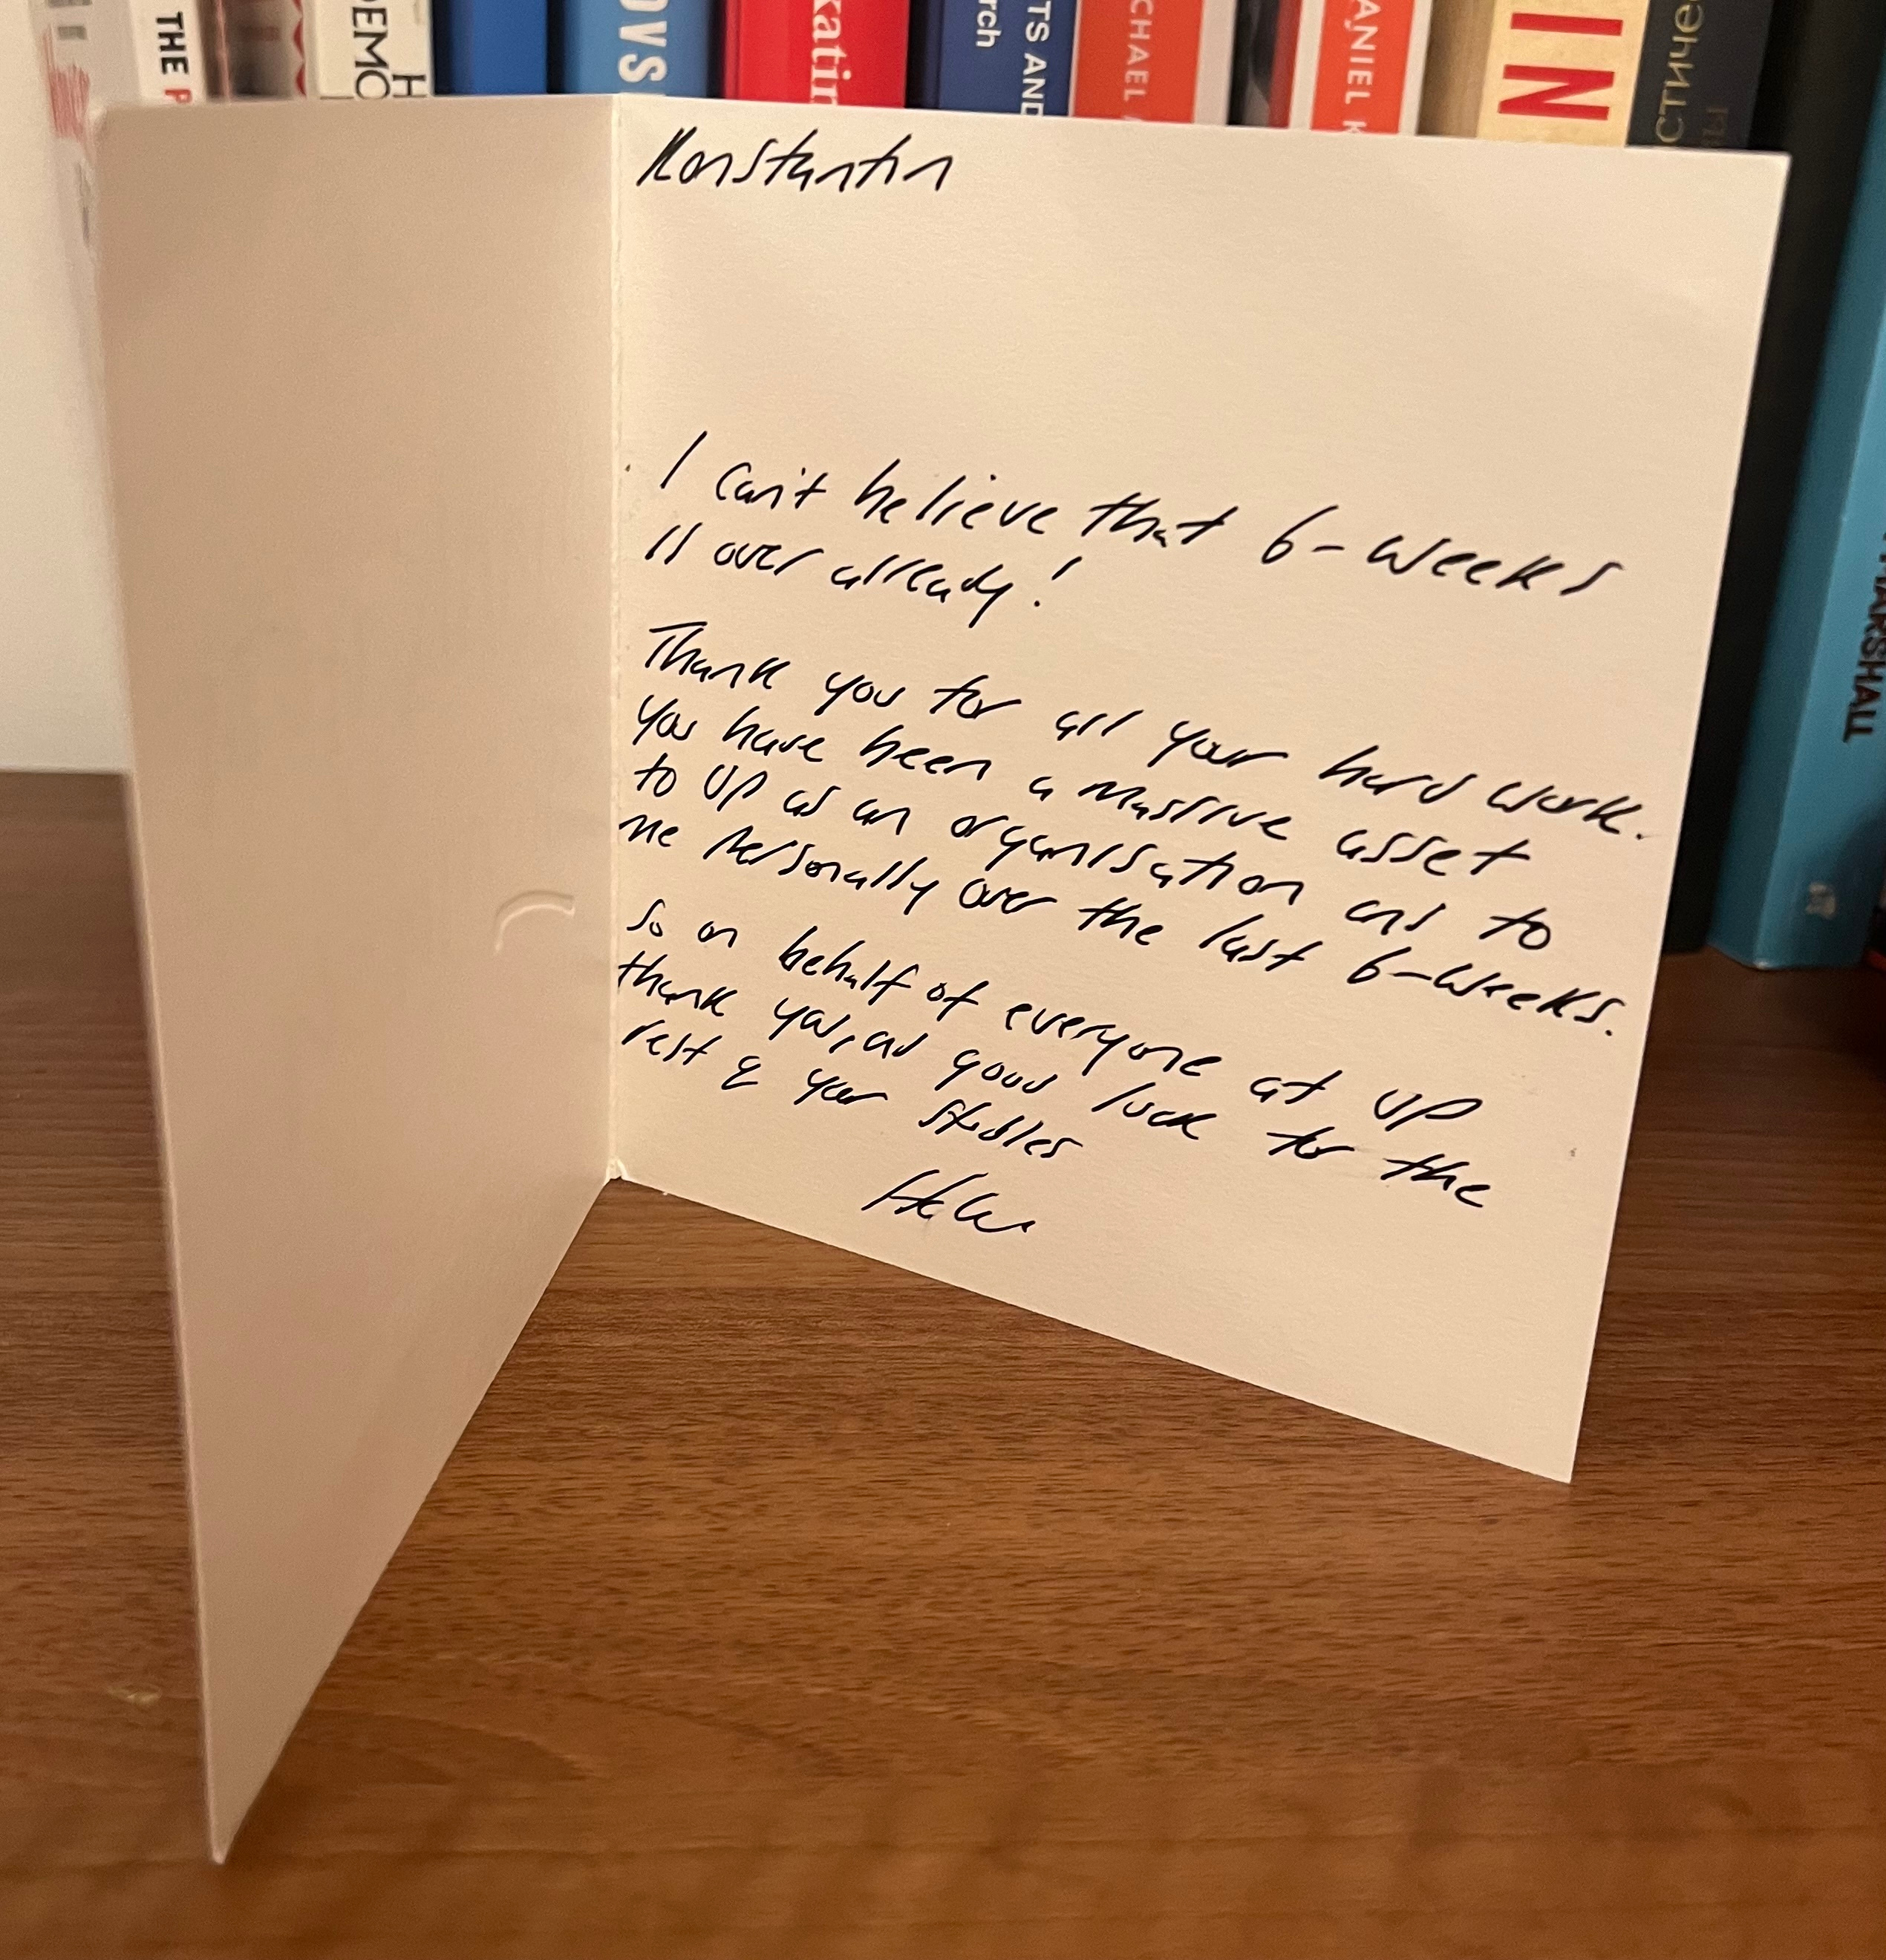 THE P
DEMO
H
OVS
katin
rch
TS AND
CHAEL
ANIEL K
IN
стиче
MARSHALL
Konstantin
I can't believe that 6-weeks
is over already!
Thank you for all your hard work.
You have been a massive asset
to UP as an organisation and to
me personally over the last 6-weeks.
So on behalf of everyone at UP
thank you, and good luck for the
rest of your studies